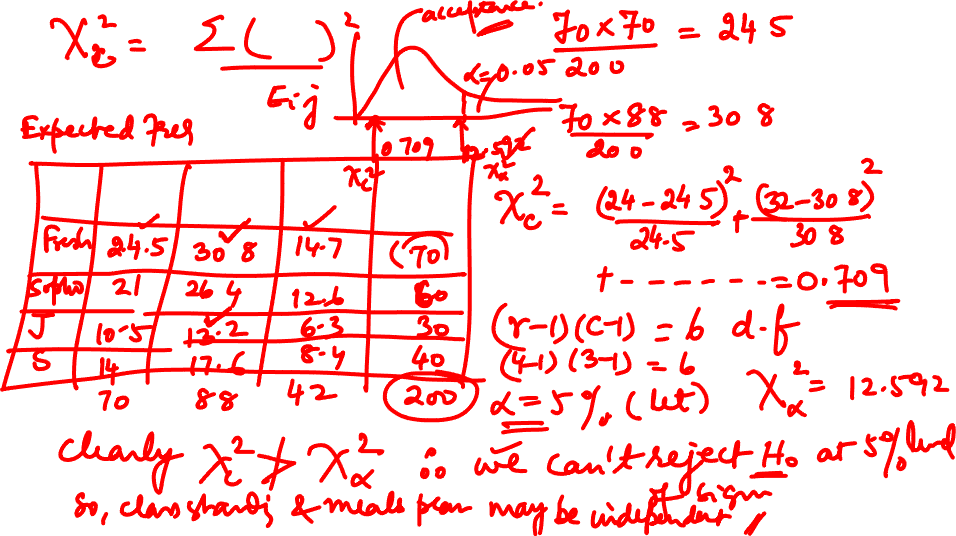 χc² = Σ( )² / Eij
acceptance.
α=0.05
0.709
12.592
χc²
χα²
70×70 / 200 = 24.5
70×88 / 200 = 30.8
Expected Freq
Fresh 24.5 30.8 14.7 (70)
Sopho 21 26.4 12.6 60
J 10.5 13.2 6.3 30
S 14 17.6 8.4 40
70 88 42 200
χc² = (24-24.5)² / 24.5 + (32-30.8)² / 30.8
+ - - - - - - = 0.709
(r-1)(c-1) = 6 d.f
(4-1)(3-1) = 6
α = 5%. (let) χα² = 12.592
Clearly χc² ≯ χα² ∴ we can't reject H₀ at 5% level
of sign
So, class standing & meals plan may be independent